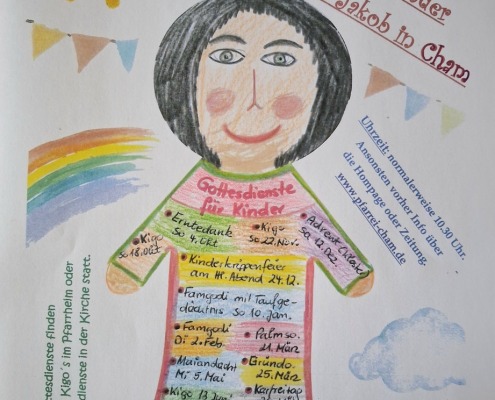 der
Jakob in Cham
Uhrzeit: normalerweise 10.30 Uhr.
Ansonsten vorher Info über
die Hompage oder Zeitung.
www.pfarrei-cham.de
Gottesdienste
für Kinder
Kigo
So 18. Okt
Erntedank
So 4. Okt
Kigo
So 22. Nov.
Advent
Sa 12. Dez
Kinderkrippenfeier
am Hl. Abend 24.12.
Famgodi mit Taufge-
dächtnis So 10. Jan.
Famgodi
Di 2. Feb.
Palmso.
21. März
Maiandacht
Mi 5. Mai
Gründo.
25. März
Kigo 13
Karfreitag
tesdienste finden
Kigo´s im Pfarrheim oder
dienste in der Kirche statt.